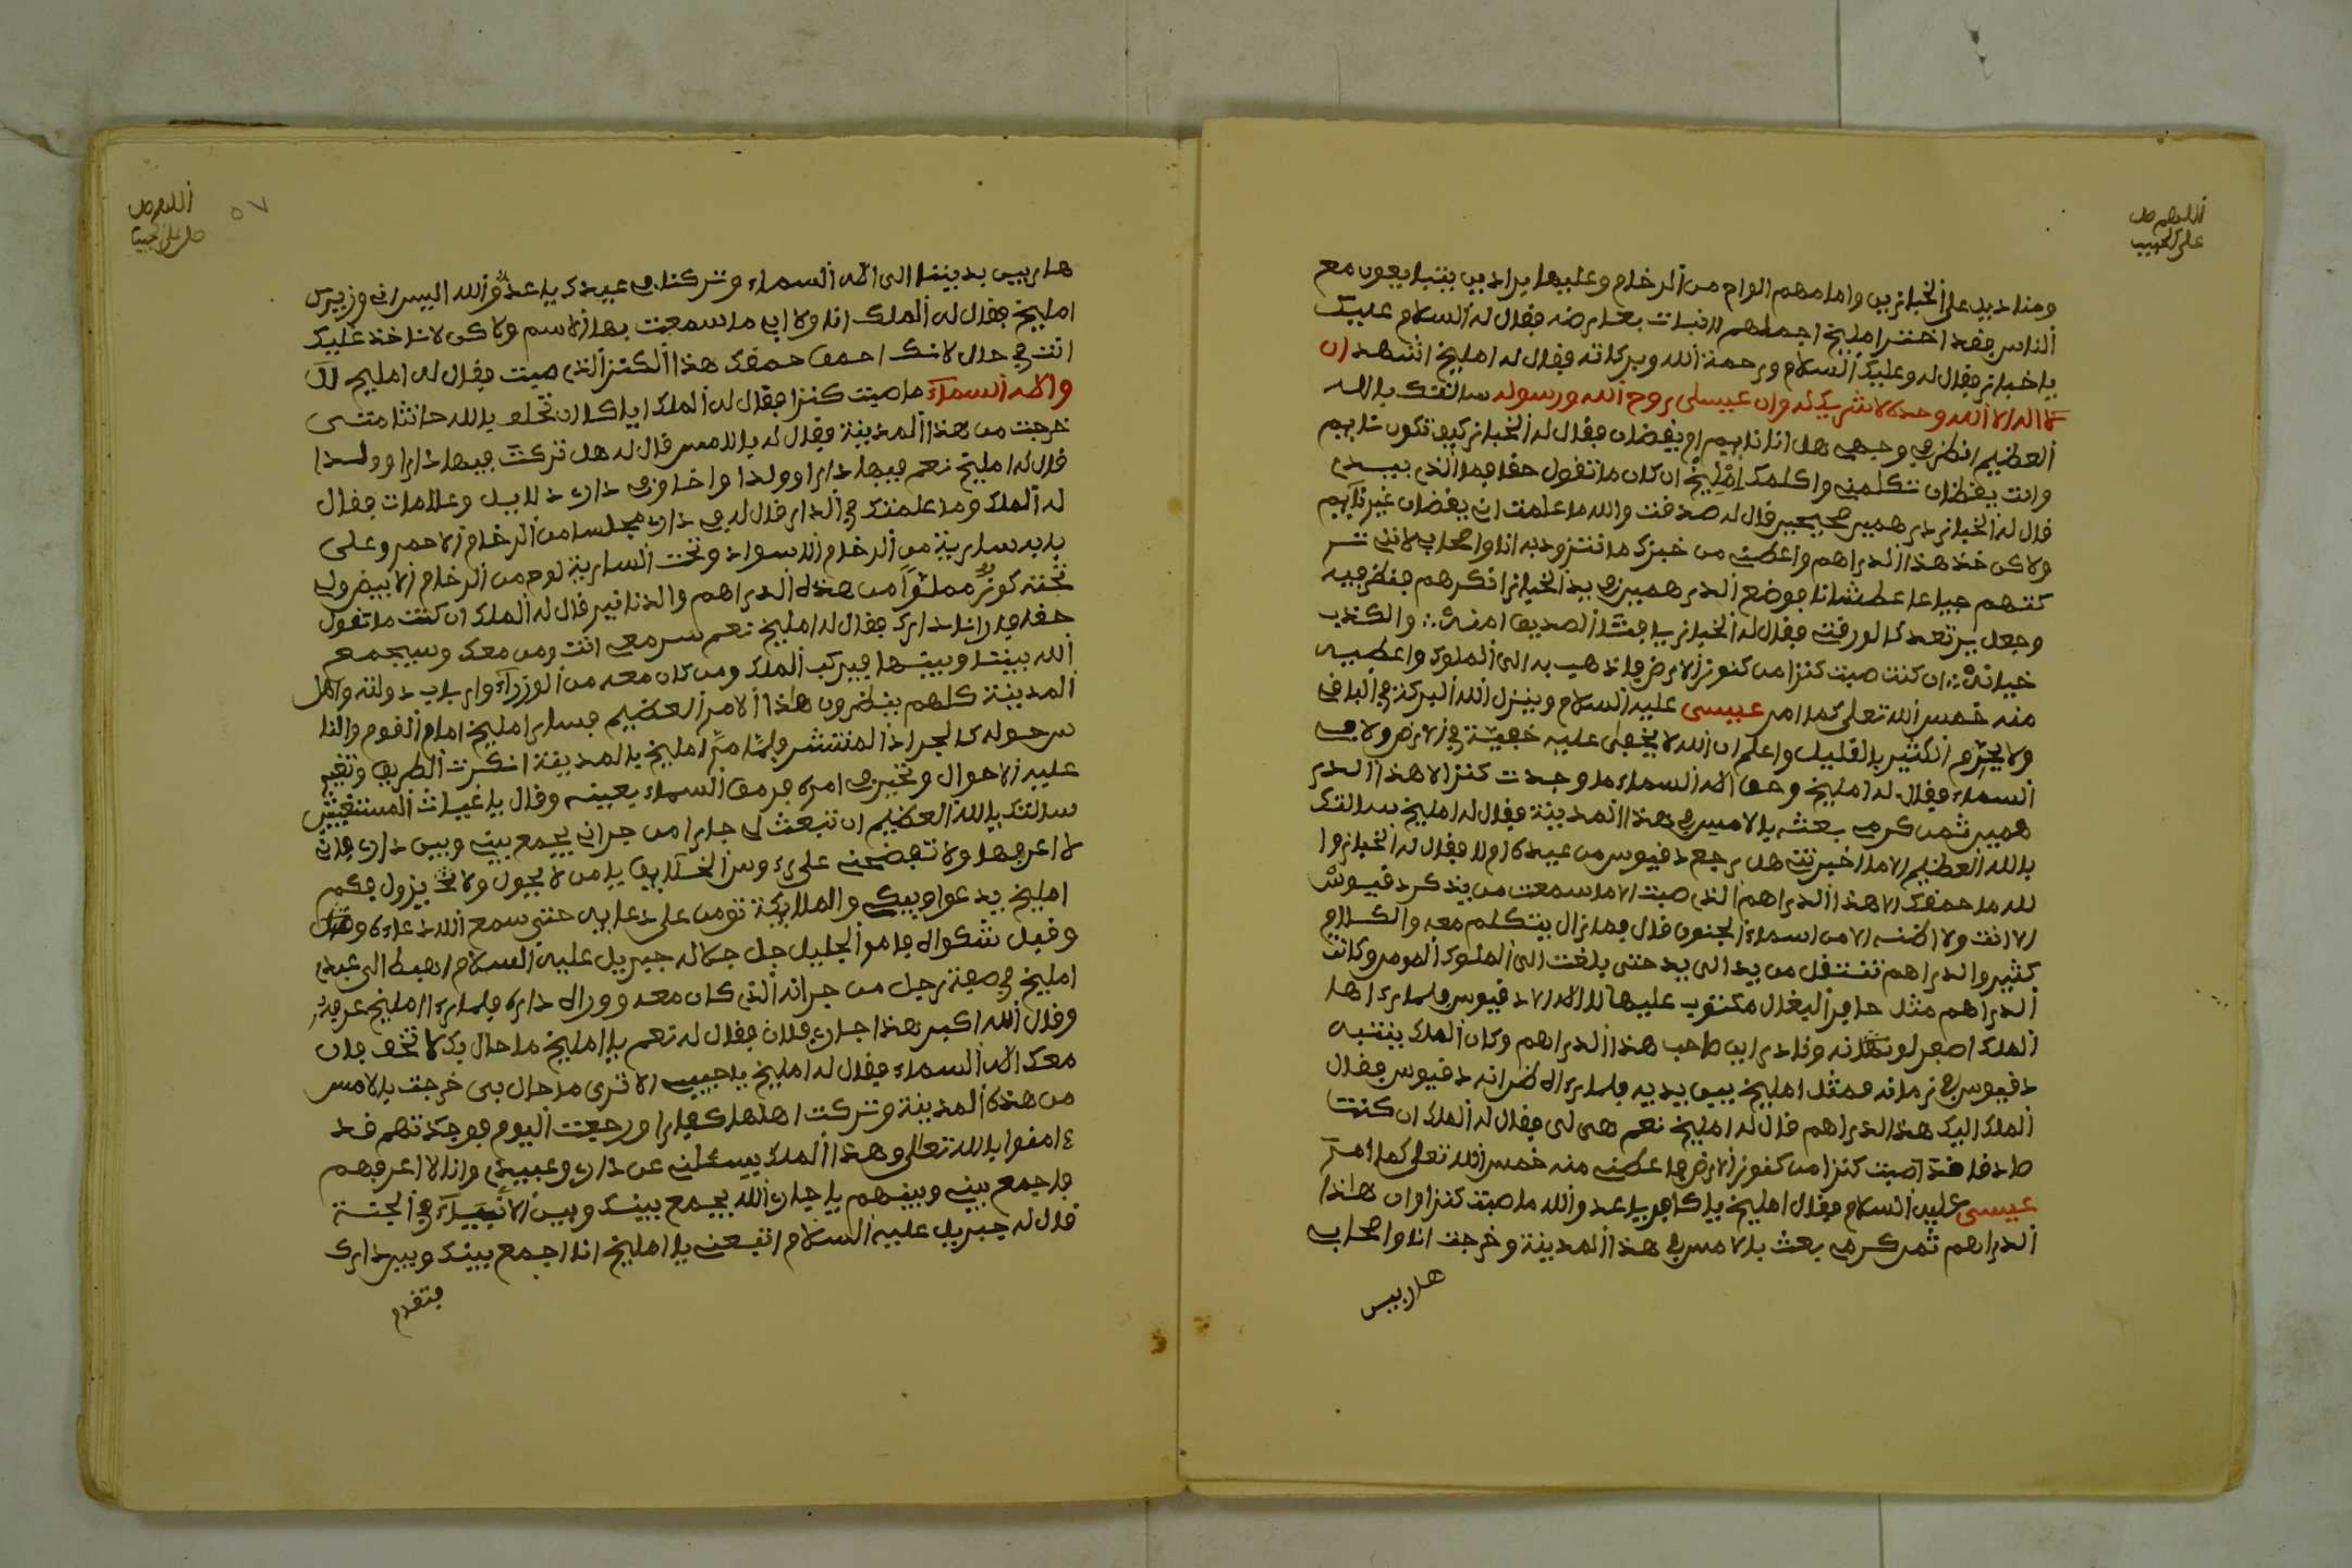 اللهم صل
على الحبيب
ومناديد على الخبازين وامامهم الواح من الرخام وعليها براديين يتبايعون مع
الناس فقد اختر امليخ اجملهم للثبات بعارضه فقال له السلام عليك
يا خباز فقال له وعليك السلام ورحمة الله وبركاته فقال له امليخ اشهد ان
لا اله الا الله وحده لا شريك له وان عيسى روح الله ورسوله سالتك بالله
العظيم انظر في وجهي هل انا نايم او يقضان فقال له الخباز كيف تكون نايم
وانت يقظان تكلمني واكلمك امليخ ان كان ما تقول حقا فما الذي بيدي
قال له الخباز درهمين صحيحين قال له صدقت والله ما علمت اني يقضان غير نايم
ولاكن خذ هذا الدراهم واعطني من خبزك ما نتزود به انا واصحابي لانني تر
كتهم جياعا عطشانا فوضع الدرهمين في يد الخباز انكرهم فنظر فيه
وجعل يرتعد كالورقة فقال له الخباز يا فتى الصديق امنه والكذب
خيانة ان كنت صبت كنزا من كنوز الارض فاذهب به الى الملوك واعطيه
منه خمس الله تعلى كما امر عيسى عليه السلام وينزل الله البركة في الباقي
ولا يحرم الكثير بالقليل واعلم ان الله لا يخفى عليه خفية في الارض ولا في
السماء فقال له امليخ وحق اله السماء ما وجدت كنزا الا هذا الدر
همين ثمن كرمي بعته بالامس في هذا المدينة فقال له امليخ سالتك
بالله العظيم الا ما اخبرتني هل رجع دقيوس من عيده ام لا فقال له الخباز وا
لله ما حمقك الا هذا الدراهم الذي صبت الا ما سمعت من يذكر دقيوس
الا انت ولا اظنه الا من اسماء الجنون قال فما زال يتكلم معه والكلام
كثير والدراهم تنتقل من يد الى يد حتى بلغت الى الملوك المومر وكانت
الدراهم مثل حافر البغال مكتوب عليها لا اله الا دقيوس فلما رءاها
الملك اصفر لونه ونادى اين صاحب هذا الدراهم وكان الملك ينتبه
دقيوس في زمانه فمثل امليخ بين يديه فلما رءاه ظن انه دقيوس فقال
الملك اليك هذا الدراهم قال له امليخ نعم هي لي فقال له الملك ان كنت
صادقا قد اصبت كنزا من كنوز الارض فاعطني منه خمس الله تعلى كما امر
عيسى عليه السلام فقال امليخ يا كافر يا عدو الله ما صبت كنزا وان هاذا
الدراهم ثمن كرمي بعت بالامس في هذا المدينة وخرجت انا واصحابي
هاربيس
اللهم صل
صل على الحبيب
٥٧
هاربين بديننا الى اله السماء وتركناك في عيدك يا عدو الله اليس انت وزيرك
امليخ فقال له الملك انا ولا ابي ما سمعت بهاذا الاسم ولاكن لا ناخذ عليك
انت في حال لانك احمق حمقك هذا الكنز الذي صبت فقال له امليخ لا
والاه السماء ما صبت كنزا فقال له الملك اياك ان تحلف بالله حانثا متى
خرجت من هذا المدينة فقال له بالامس قال له هل تركت فيها دارا وولدا
قال له امليخ نعم فيها دارا وولدا واخا وفي داري دلايل وعلامات فقال
له الملك وما علمتك في الدار قال له في داري مجلسا من الرخام الاحمر وعلى
بابه سارية من الرخام الاسواد وتحت السارية لوح من الرخام الابيض ولي
تحته كوز مملوا من هذه الدراهم والدنانير قال له الملك ان كنت ما تقول
حقا فارنا دارك فقال له امليخ نعم سر معي انت ومن معك وسيجمع
الله بيننا وبينها فيركب الملك ومن كان معه من الوزراء وارباب دولته واهل
المدينة كلهم ينظرون هاذا الامر العظيم فسار امليخ امام القوم والنا
س حوله كالجراد المنتشر فلما مر امليخ بالمدينة انكرت الطريق وتغير
عليه الاحوال وتحير في امره فرمق السماء بعينه وقال يا غياث المستغيثين
سالتك بالله العظيم ان تبعث لي جارا من جراني يجمع بيني وبين داري فاني
لا اعرفها ولا تفضحني على رءوس الخلايق يا من لا يحول ولا يزول فكم
امليخ يدعوا ويبكي والملايكة تومن على دعايه حتى سمع الله دعاءه
وقبل شكواه فامر الجليل جل جلاله جبريل عليه السلام اهبط الى عبدي
امليخ في صفة رجل من جرانه الذي كان معه ووراه داره فلما رءا امليخ عرفه
وقال الله اكبر هذا جاري فلان فقال له نعم يا امليخ ما حال بك لا تخف فان
معك الاه السماء فقال له امليخ يا حبيبي الا ترى ما حال بي خرجت بالامس
من هذه المدينة وتركت اهلها كفارا ورجعت اليوم فوجدتهم قد
ءامنوا بالله تعالى وهذا الملك يسئلني عن داري وعبيدي وانا لا اعرفهم
فاجمع بيني وبينهم يا جاري الله يجمع بينك وبين الانبياء في الجنة
قال له جبريل عليه السلام اتبعني يا امليخ انا اجمع بينك وبين دارك
فتقدم